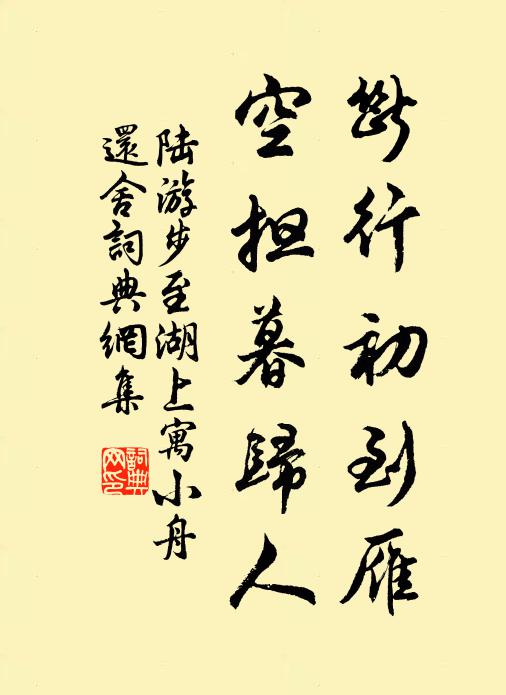 断行初到雁
空担暮歸人
陆游步至湖上寓小舟
還舍詞典網集
詞典
网印